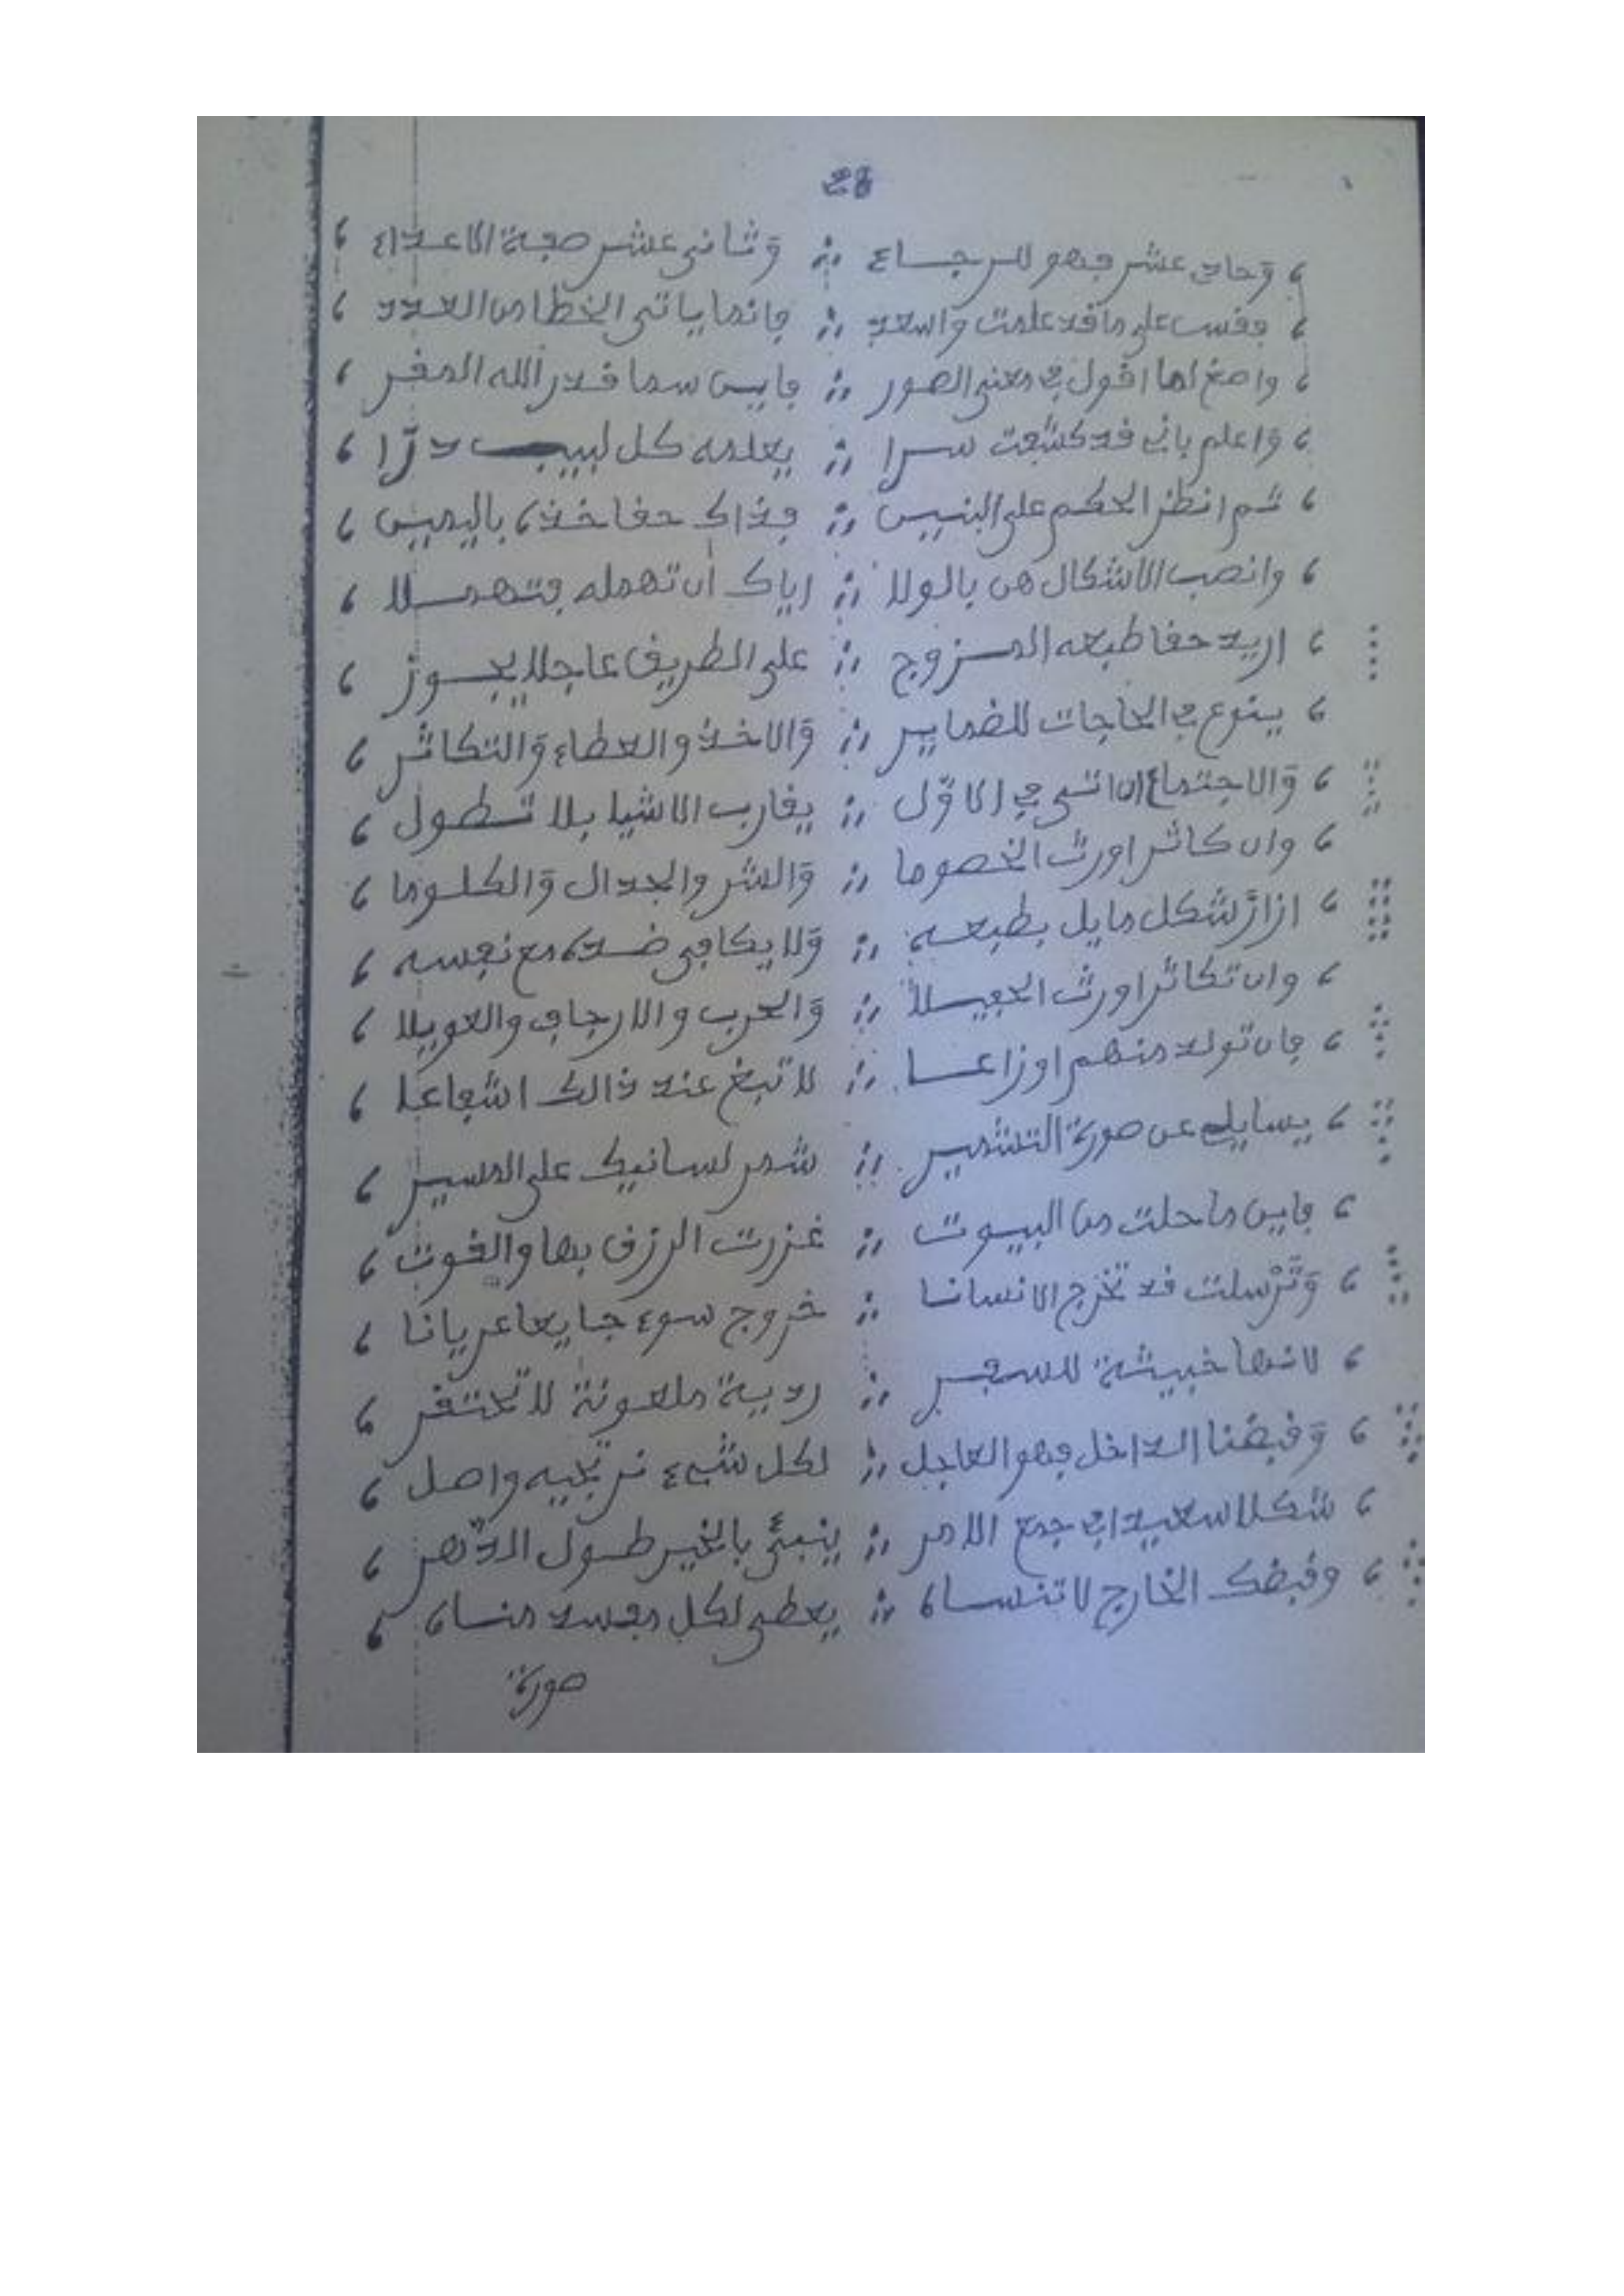 28
، وحادي عشر فهو للرجاء ؛ وثاني عشر صفة الاعداء ،
، فقس على ما قد علمت واستعد ؛ فانما ياتي الخطا من العدد ،
، واصغ لما اقول في معنى الصور ؛ فاين سما قدر الله المفر ،
، واعلم باني قد كشفت سرا ؛ يعلمه كل لبيب درّا ،
، ثم انظر الحكم على البنيين ؛ فذاك حقا خذه باليمين ،
، وانصب الاشكال هن بالولا ؛ اياك أن تهمله فتهملا ،
، اريد حقا طبعه الممزوج ؛ على الطريق عاجلا يجوز ،
، ينوع في الحاجات للضماير ؛ والاخذ والعطاء والتكاثر ،
، والاجتماع ان اتى في الاوّل ؛ يقارب الاشيا بلا تطول ،
، وان كاثر اورث الخصوما ؛ والشر والجدال والكلوما ،
، ازازَ شكل مايل بطبعه ؛ ولا يكافى ضده مع نفسه ،
، وان تكاثر اورث الحفيلا ؛ والحرب والارجاف والعويلا ،
، فان تولد منهم اوزاعا ؛ لا تبغ عند ذالك اشفاعا ،
، يسايلي عن صورة التشمير ؛ شمر لسانيك على المسير ،
، فاين ما حلت من البيوت ؛ غزرت الرزق بها والقوت ،
، وتَرْسلت قد تخرج الانسانا ؛ خروج سوء جايعا عريانا ،
، لانها خبيثة للسفر ؛ ردية ملعونة لا تحتقر ،
، وقبضُنا الداخل فهو العاجل ؛ لكل شيء نرتجيه واصل ،
، شكلا سعيدا في جمع الامر ؛ ينبئُ بالخير طول الدّهر ،
، وقبضك الخارج لا تنساه ؛ يعطي لكل مفسد مناه ،
صورة